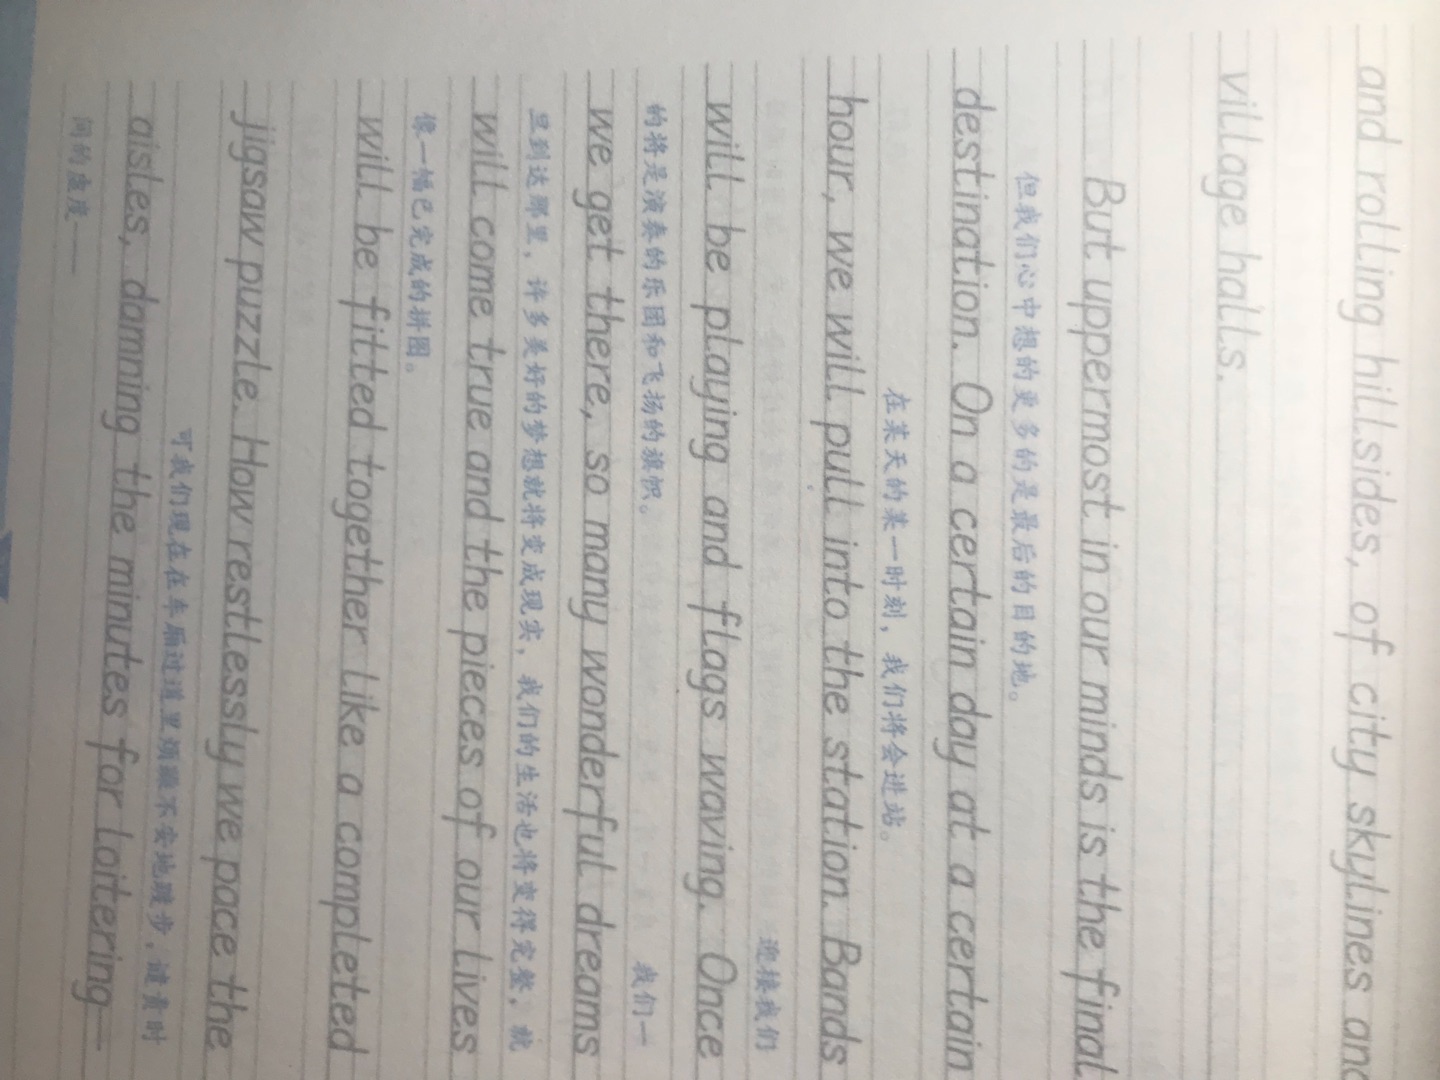 and rolling hillsides, of city skylines and
village halls.
But uppermost in our minds is the final
但我们心中想的更多的是最后的目的地。
destination. On a certain day at a certain
在某天的某一时刻，我们将会进站。
hour, we will pull into the station. Bands
迎接我们
will be playing and flags waving. Once
的将是演奏的乐团和飞扬的旗帜。 我们一
we get there, so many wonderful dreams
旦到达那里，许多美好的梦想就将变成现实，我们的生活也将变得完整，就
will come true and the pieces of our lives
像一幅已完成的拼图。
will be fitted together like a completed
jigsaw puzzle. How restlessly we pace the
可我们现在在车厢过道里烦躁不安地踱步，谴责时
aisles, damning the minutes for loitering—
间的虚度——